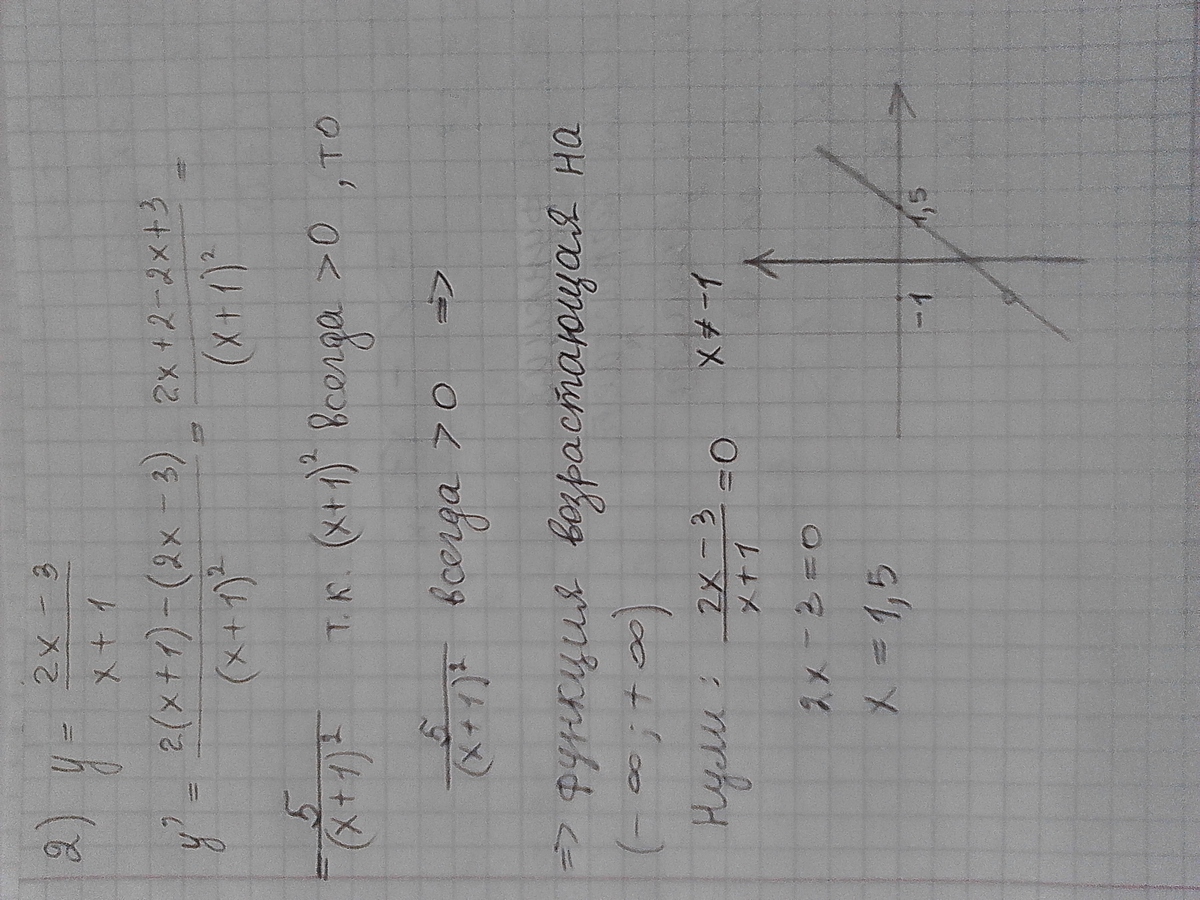 2) y = (2x - 3)/(x + 1)
y' = (2(x+1) - (2x - 3))/(x+1)² = (2x + 2 - 2x + 3)/(x+1)² =
= 5/(x+1)² т.к. (x+1)² всегда > 0, то
5/(x+1)² всегда > 0 =>
=> функция возрастающая на
(- ∞; + ∞)
Нули: (2x - 3)/(x + 1) = 0 x ≠ -1
2x - 3 = 0
x = 1,5
-1 1,5